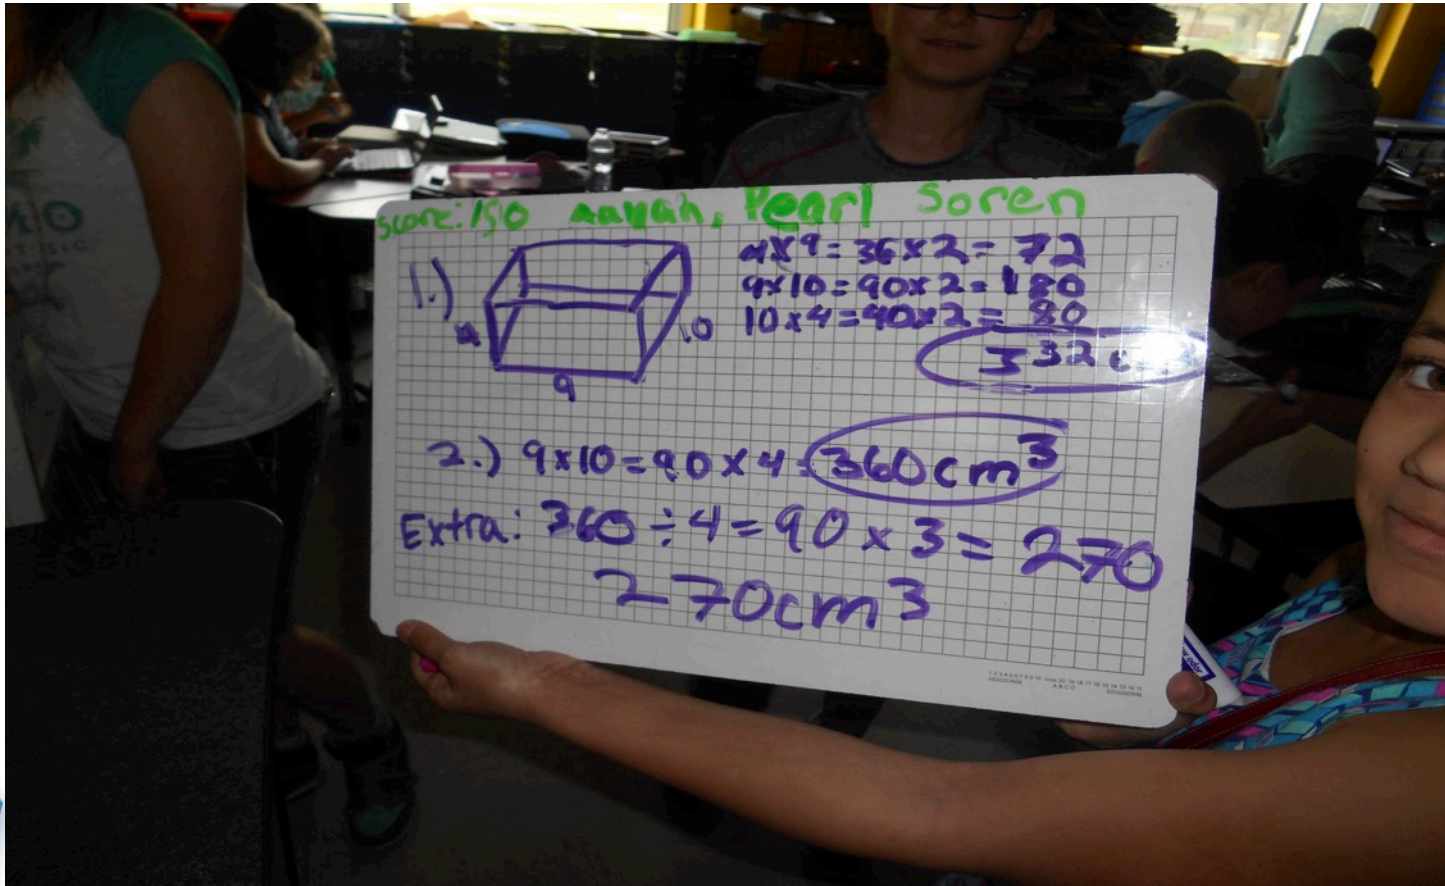 Score: 150 aayah, Pearl Soren
1.)
4
9
10
4x9=36x2= 72
9x10=90x2=180
10x4=40x2= 80
332 c
2.) 9x10=90x4=360cm³
Extra: 360÷4=90x3=270
270cm³